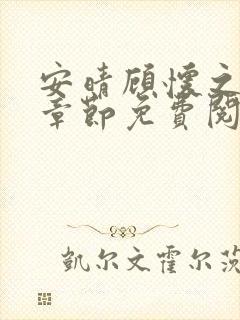 安晴顾怀之
章节免费阅
凯尔文霍尔茨